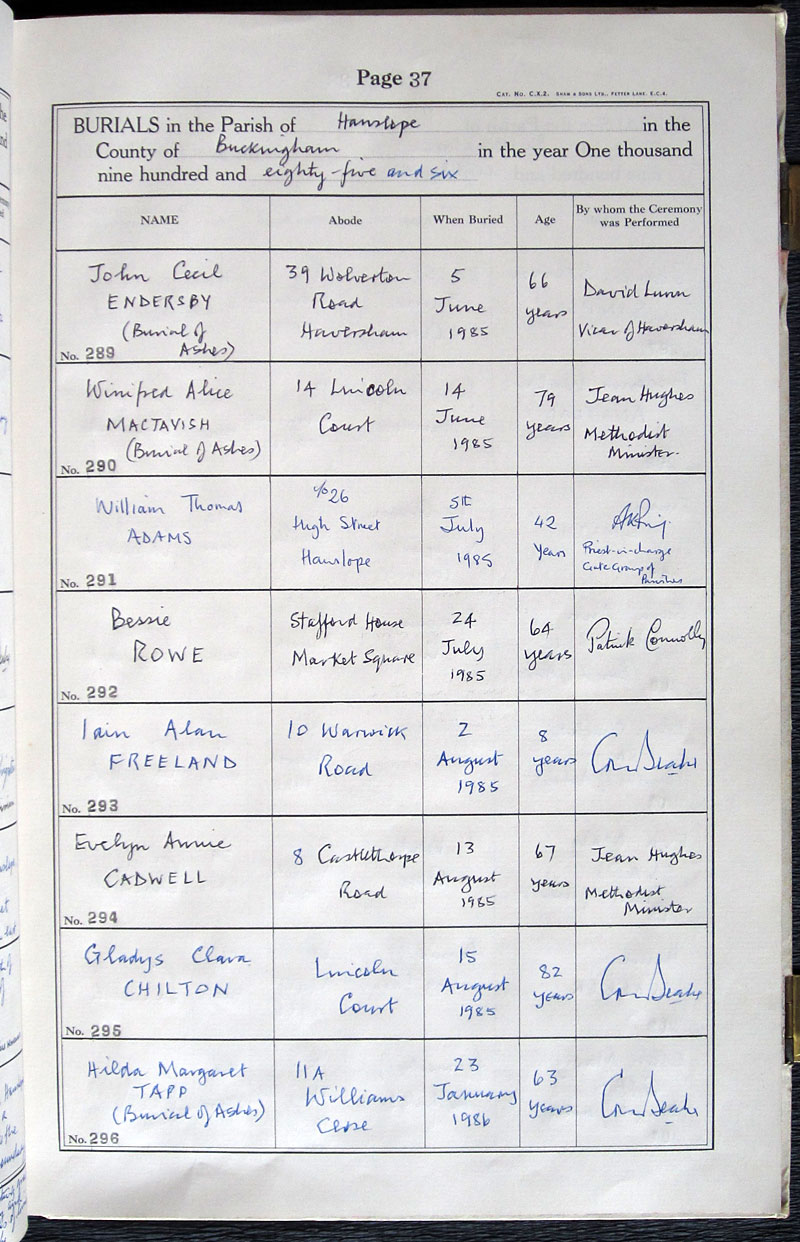 Page 37
CAT. No. C.X.2. SHAW & SONS LTD., FETTER LANE. E.C.4.
BURIALS in the Parish of Hanslope in the
County of Buckingham in the year One thousand
nine hundred and eighty-five and six
NAME Abode When Buried Age By whom the Ceremony was Performed
John Cecil
ENDERSBY
(Burial of
Ashes)
No. 289
39 Wolverton
Road
Haversham
5
June
1985
66
years
David Lunn
Vicar of Haversham
Winifred Alice
MACTAVISH
(Burial of Ashes)
No. 290
14 Lincoln
Court
14
June
1985
79
years
Jean Hughes
Methodist
Minister.
William Thomas
ADAMS
No. 291
c/o 26
High Street
Hanslope
5th
July
1985
42
Years
Priest-in-charge
Group of
Parishes
Bessie
ROWE
No. 292
Stafford House
Market Square
24
July
1985
64
years
Patrick Connolly
Iain Alan
FREELAND
No. 293
10 Warwick
Road
2
August
1985
8
years
Evelyn Annie
CADWELL
No. 294
8 Castlethorpe
Road
13
August
1985
67
years
Jean Hughes
Methodist
Minister
Gladys Clara
CHILTON
No. 295
Lincoln
Court
15
August
1985
82
years
Hilda Margaret
TAPP
(Burial of Ashes)
No. 296
11A
Williams
Close
23
January
1986
63
Years